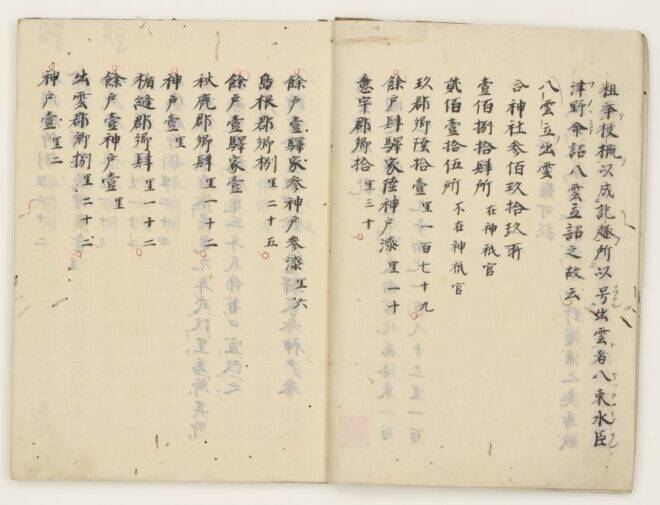 粗挙梗概以成記趣所以号出雲者八束水臣
津野命詔八雲立詔之故云
八雲立出雲
合神社参佰玖拾玖所
壹佰捌拾肆所 在神祇官
貳佰壹拾伍所 不在神祇官
玖郡郷陸拾壹 里一百七十九
餘戸肆驛家陸神戸漆 里一十
意宇郡郷拾 里三十
餘戸壹驛家参神戸参 里六
島根郡郷捌 里二十五
餘戸壹驛家壹
秋鹿郡郷肆 里一十二
神戸壹 里
楯縫郡郷肆 里一十二
餘戸壹神戸壹 里
出雲郡郷捌 里二十二
神戸壹 里二